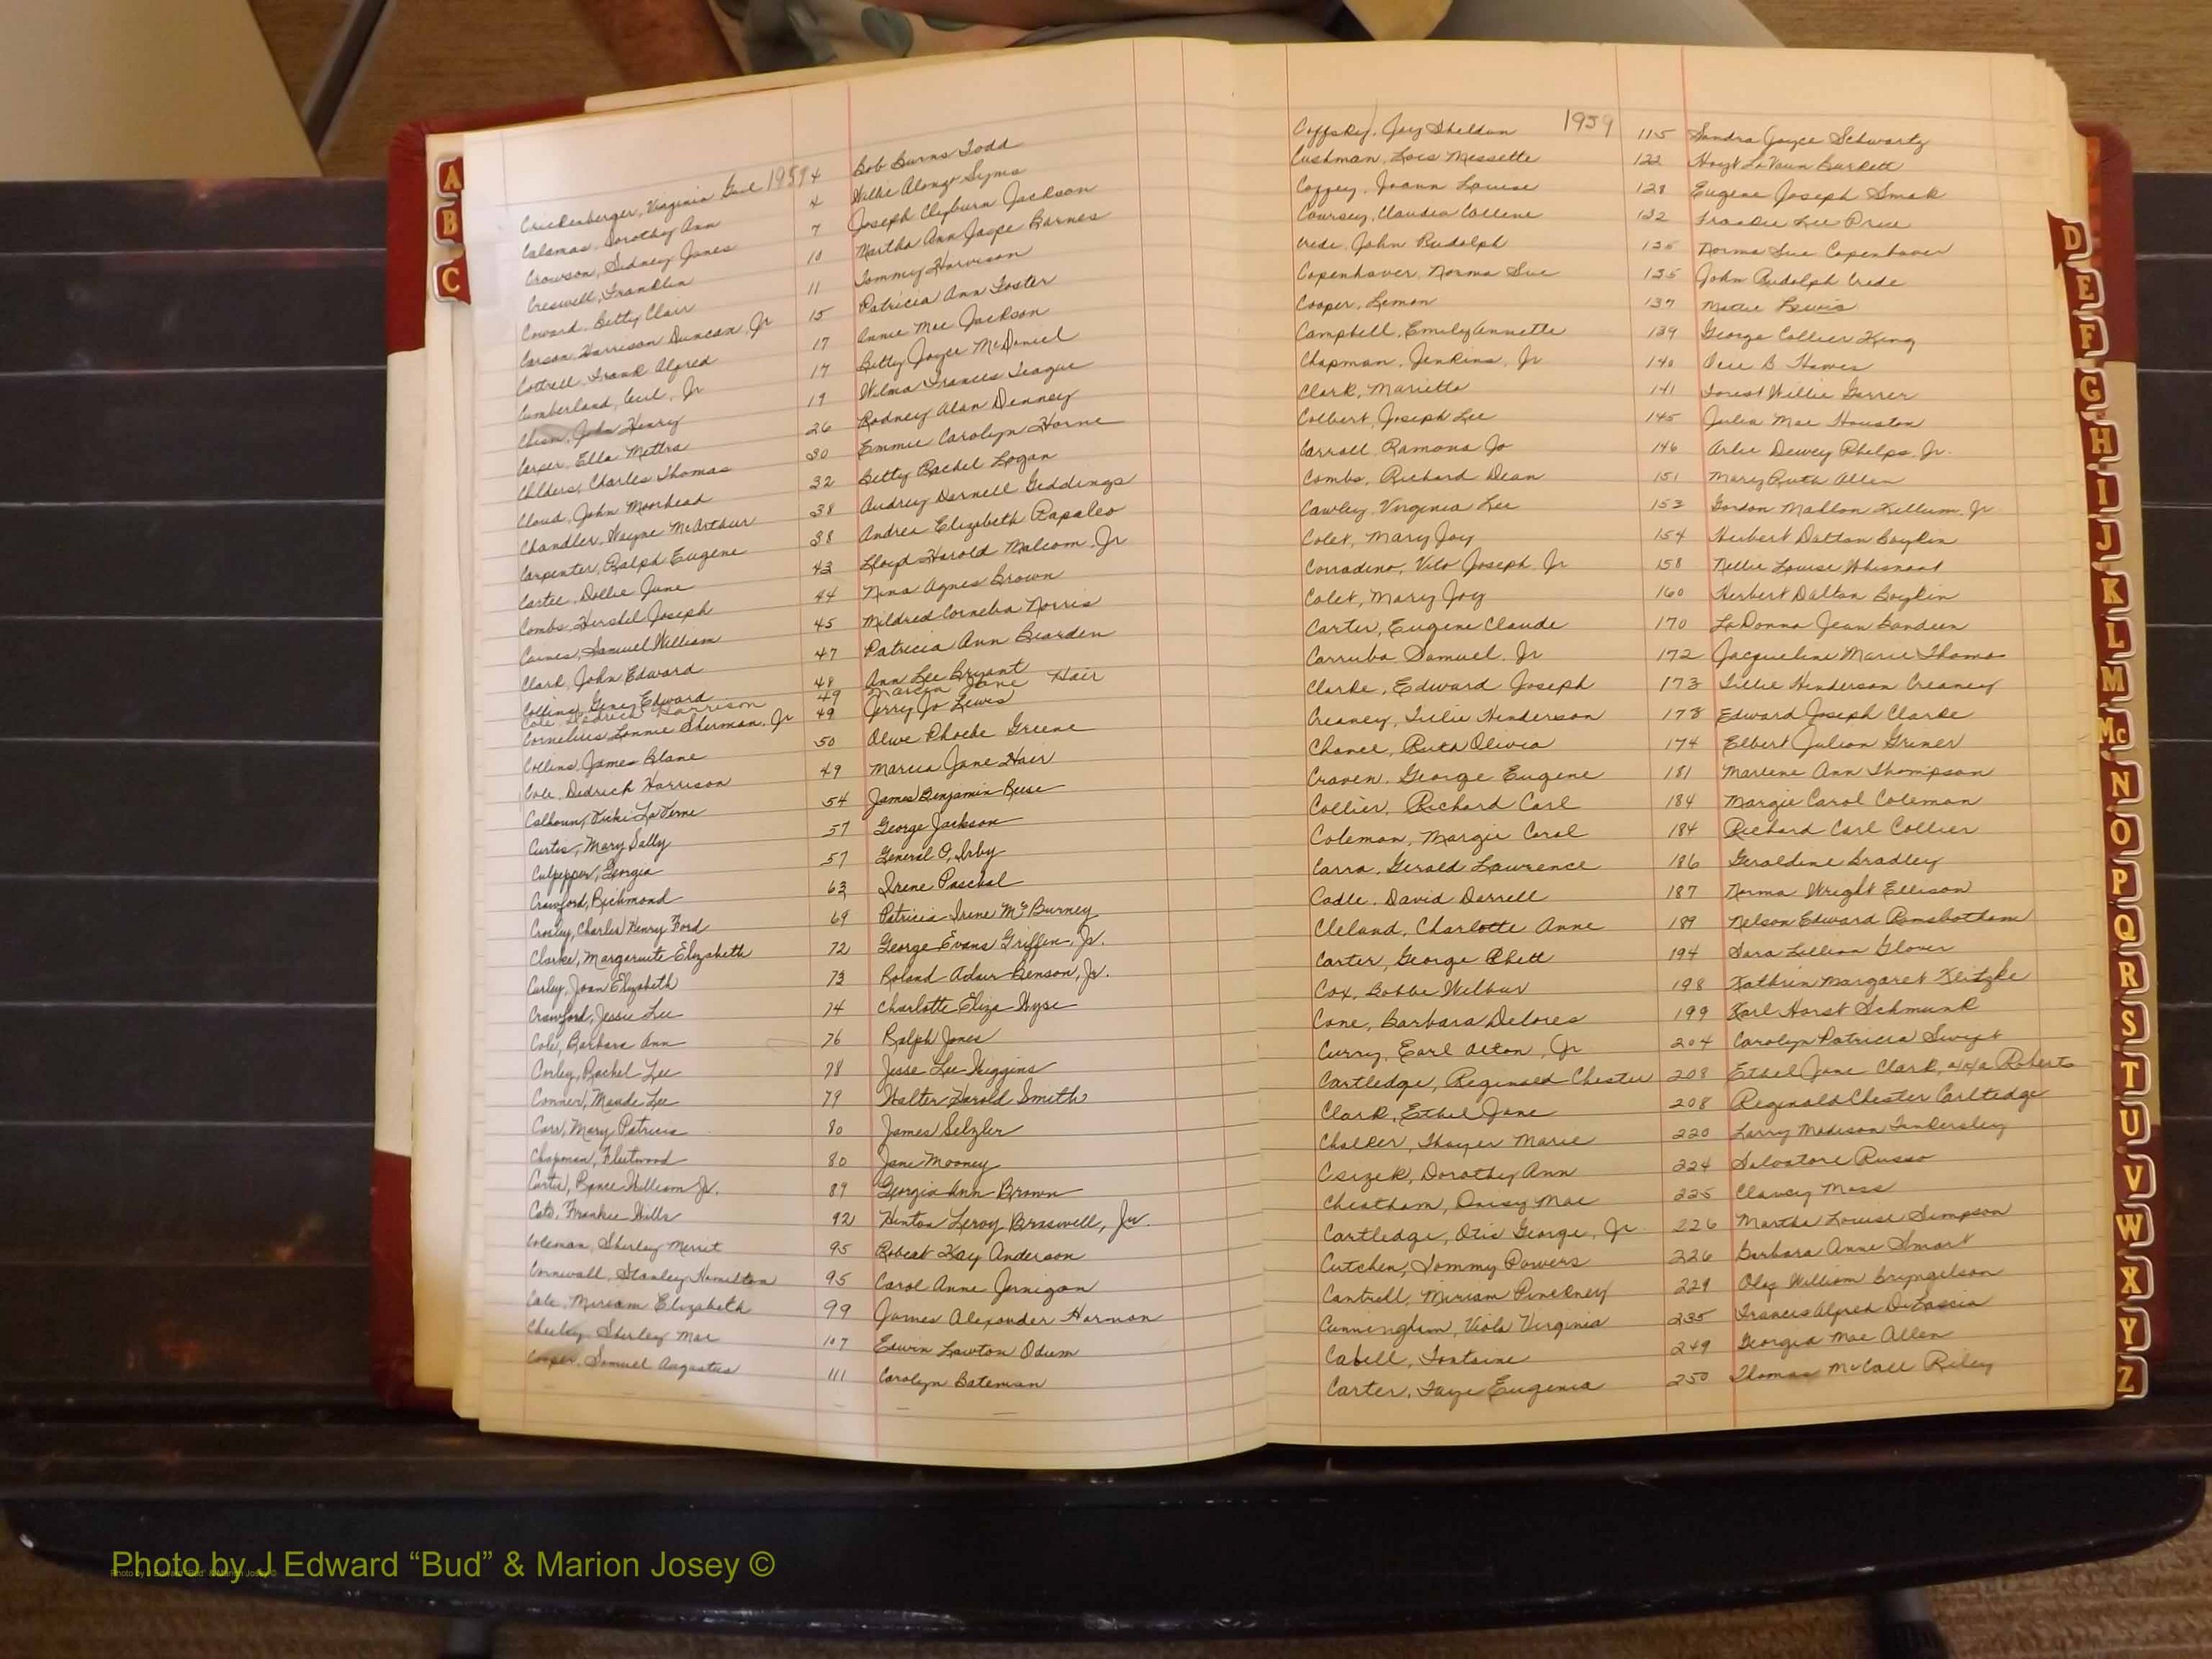 Crickenberger, Virginia Gail 1959 4 Bob Burns Todd
Calamas, Dorothy Ann 4 Willie Alonzo Syms
Crowson, Sidney Jones 7 Joseph Clyburn Jackson
Creswell, Franklin 10 Martha Ann Jaspe Barnes
Coward, Betty Clair 11 Tommy Harvison
Carson, Harrison Duncan, Jr 15 Patricia Ann Foster
Cottrell, Frank Alfred 17 Annie Mae Jackson
Cumberland, Cecil, Jr 17 Betty Joyce McDaniel
Chism, John Henry 19 Wilma Frances Teague
Carper, Ella Mettra 26 Rodney Alan Denney
Childers, Charles Thomas 30 Emmie Carolyn Horne
Cloud, John Moorhead 32 Betty Rachel Logan
Chandler, Wayne McArthur 38 Audrey Darnell Geddings
Carpenter, Ralph Eugene 38 Andrea Elizabeth Papaleo
Cartee, Dollie June 43 Lloyd Harold Malcom, Jr
Combs, Hershel Joseph 44 Nina Agnes Brown
Caines, Samuel William 45 Mildred Cornelia Norris
Clark, John Edward 47 Patricia Ann Bearden
Collins, Gene Edward 48 Ann Lee Bryant
Cole, Dedrick Harrison 49 Marcia Jane Hair
Cornelius, Lonnie Sherman, Jr 49 Jerry Jo Lewis
Collins, James Blane 50 Olive Phoebe Greene
Cole, Dedrick Harrison 49 Marcia Jane Hair
Calhoun, Vicki LaVerne 54 James Benjamin Reese
Curtis, Mary Sally 57 George Jackson
Culpepper, Georgia 57 General O, Irby
Crawford, Richmond 63 Irene Paschal
Crosley, Charles Henry Ford 69 Patricia Irene McBurney
Clarke, Margaruite Elizabeth 72 George Evans Griffen, Jr.
Curley, Joan Elizabeth 73 Roland Adair Benson, Jr.
Crawford, Jessie Lee 74 Charlotte Eliza Wyse
Cole, Barbara Ann 76 Ralph Jones
Corley, Rachel Lee 78 Jesse Lee Wiggins
Conner, Maude Lee 79 Walter Harold Smith
Carr, Mary Patricia 80 James Selzler
Chapman, Fleetwood 80 Jane Mooney
Curtis, Rance William Jr. 89 Georgia Ann Brown
Cato, Frankie Willa 92 Hinton Leroy Braswell, Jr.
Coleman, Sherley Merrit 95 Robert Kay Anderson
Cornwall, Stanley Hamilton 95 Carol Anne Jernigan
Cate, Miriam Elizabeth 99 James Alexander Harmon
Cheeley, Sherley Mae 107 Edwin Lawton Odum
Cooper, Samuel Augustus 111 Carolyn Bateman
Coffsky, Jay Sheldon 1959 115 Sandra Joyce Schwartz
Cushman, Lois Messette 122 Hoyt LaVaun Burkett
Coffey, Joann Louise 128 Eugene Joseph Smak
Coursey, Claudia Collene 132 Frankie Lee Price
Crede, John Rudolph 135 Norma Sue Copenhaver
Copenhaver, Norma Sue 135 John Rudolph Crede
Cooper, Lemon 137 Mattie Lewis
Campbell, Emily Annette 139 George Collier King
Chapman, Jenkins, Jr 140 B Hawes
Clark, Marietta 141 Forest Willie Garrer
Colbert, Joseph Lee 145 Julia Mae Houston
Carroll, Ramona Jo 146 Arlie Dewey Phelps, Jr.
Combs, Richard Dean 151 Mary Ruth Allen
Cawley, Virginia Lee 153 Gordon Mahlon Kellum, Jr
Colet, Mary Joy 154 Herbert Dalton Boykin
Corradino, Vito Joseph, Jr 158 Nellie Louise Whisnant
Colet, Mary Joy 160 Herbert Dalton Boykin
Carter, Eugene Claude 170 LaDonna Jean Bandeen
Carruba, Samuel, Jr 172 Jacqueline Marie Thomas
Clarke, Edward Joseph 173 Lillie Henderson Creaney
Creaney, Lillie Henderson 173 Edward Joseph Clarke
Chance, Ruth Olivia 174 Elbert Julian Griner
Craven, George Eugene 181 Marlene Ann Thompson
Collier, Richard Carl 184 Margie Carol Coleman
Coleman, Margie Carol 184 Richard Carl Collier
Carra, Gerald Lawrence 186 Geraldine Bradley
Cadle, David Darrell 187 Norma Wright Ellison
Cleland, Charlotte Anne 189 Nelson Edward Ramsbotham
Carter, George Rhett 194 Sara Lillian Glover
Cox, Bobbe Wilbur 198 Kathrin Margaret Klitzke
Cone, Barbara Delores 199 Karl Horst Schmunk
Curry, Earl Alton, Jr 204 Carolyn Patricia Swift
Cartledge, Reginald Chester 208 Ethel Jane Clark, a/k/a Roberts
Clark, Ethel Jane 208 Reginald Chester Carltedge
Chalker, Thayer Marie 220 Larry Madison Tankersley
Csizek, Dorothy Ann 224 Salvatore Russo
Cheatham, Daisy Mae 225 Clancy Moss
Cartledge, Otis George, Jr 226 Martha Louise Simpson
Cutchen, Tommy Powers 226 Barbara Anne Smart
Cantrell, Miriam Pinckney 229 Olof William Bryngelson
Cunningham, Viola Virginia 235 Francis Alfred DiFascia
Cabell, Fontaine 249 Georgia Mae Allen
Carter, Faye Eugenia 250 Thomas McCall Riley
A
B
C
D
E
F
G
H
I
J
K
L
M
Mc
N
O
P
Q
R
S
T
U
V
W
X
Y
Z
Photo by J Edward “Bud” & Marion Josey ©
Photo by J Edward "Bud" & Marion Josey ©